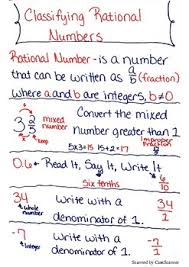 Classifying Rational
Numbers
Rational Number - is a number
that can be written as a/b (fraction)
where a and b are integers, b≠0
3 2/5 Convert the mixed
number greater than 1
5x3=15 15+2=17
Improper
Fraction
17/5
0.6 Read It, Say It, Write It 6/10
six tenths
34 Write with a 34/1
whole
number
denominator of 1.
-7 Write with a -7/1
integer
denominator of 1.
Scanned by CamScanner